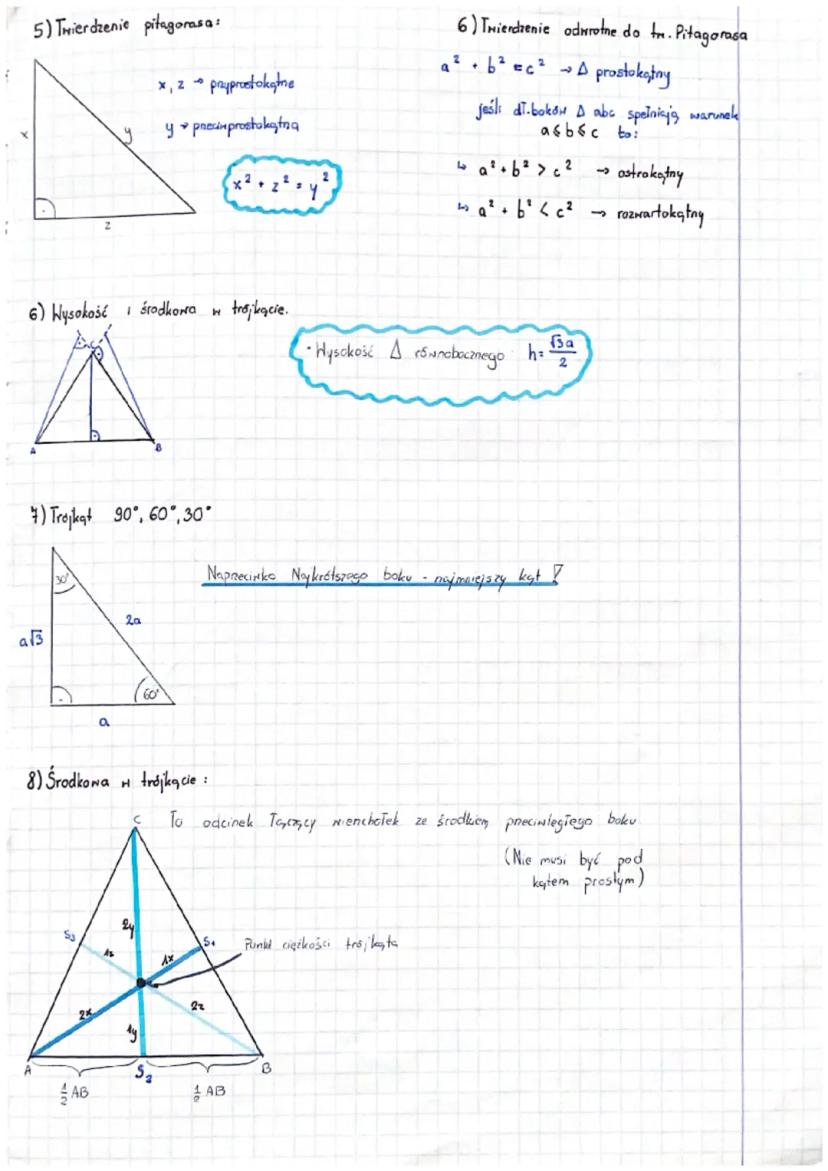 5) Twierdzenie pitagorasa:
x
y
z
x, z → przyprostokątne
y → przeciwprostokątna
x² + z² = y²
6) Twierdzenie odwrotne do tw. Pitagorasa
a² + b² = c² → Δ prostokątny
jeśli dł. boków Δ abc spełniają warunek
a ≤ b ≤ c to:
↳ a² + b² > c² → ostrokątny
↳ a² + b² < c² → rozwartokątny
6) Wysokość i środkowa w trójkącie.
C
A
B
· Wysokość Δ równobocznego h = √3a/2
7) Trójkąt 90°, 60°, 30°
30°
a√3
2a
60°
a
Naprzeciwko Najkrótszego boku - najmniejszy kąt !
8) Środkowa w trójkącie :
C
To odcinek łączący wierzchołek ze środkiem przeciwległego boku
(Nie musi być pod
kątem prostym)
S₃
2y
S₁
1z
1x
Punkt ciężkości trójkąta
2x
2z
1y
A
S₂
B
½ AB
½ AB